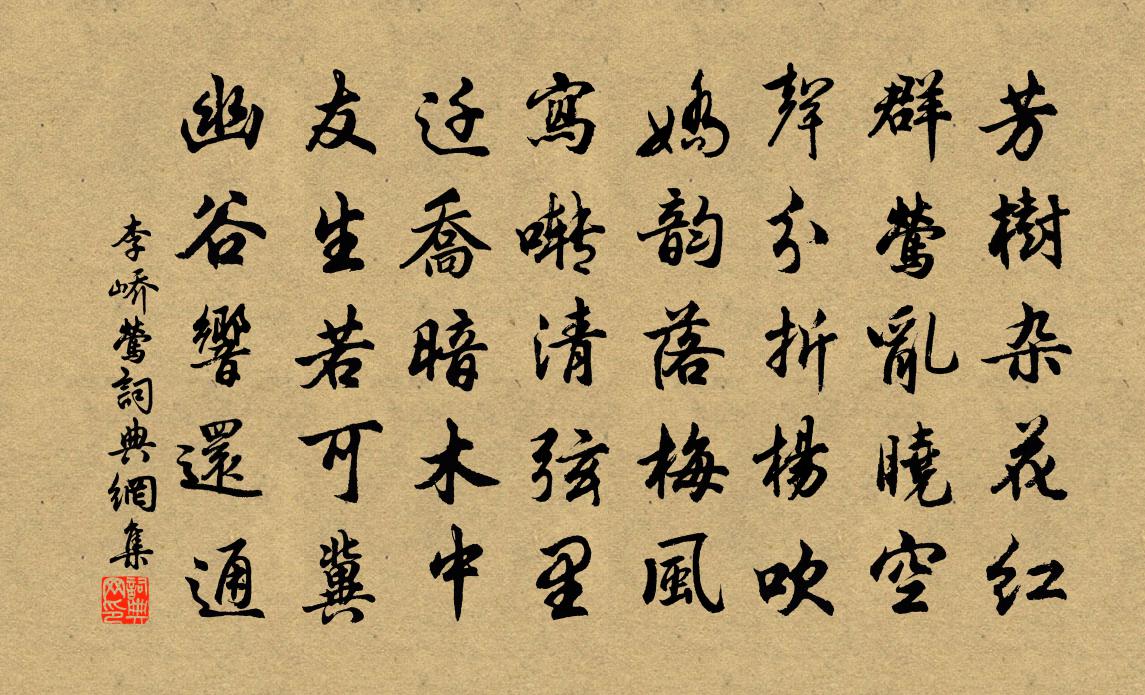 芳樹杂花红
群鶯亂曉空
聲分折楊吹
嬌韵落梅風
寫囀清弦里
迁喬暗木中
友生若可冀
幽谷響還通
李嶠鶯詞典網集
詞典网印